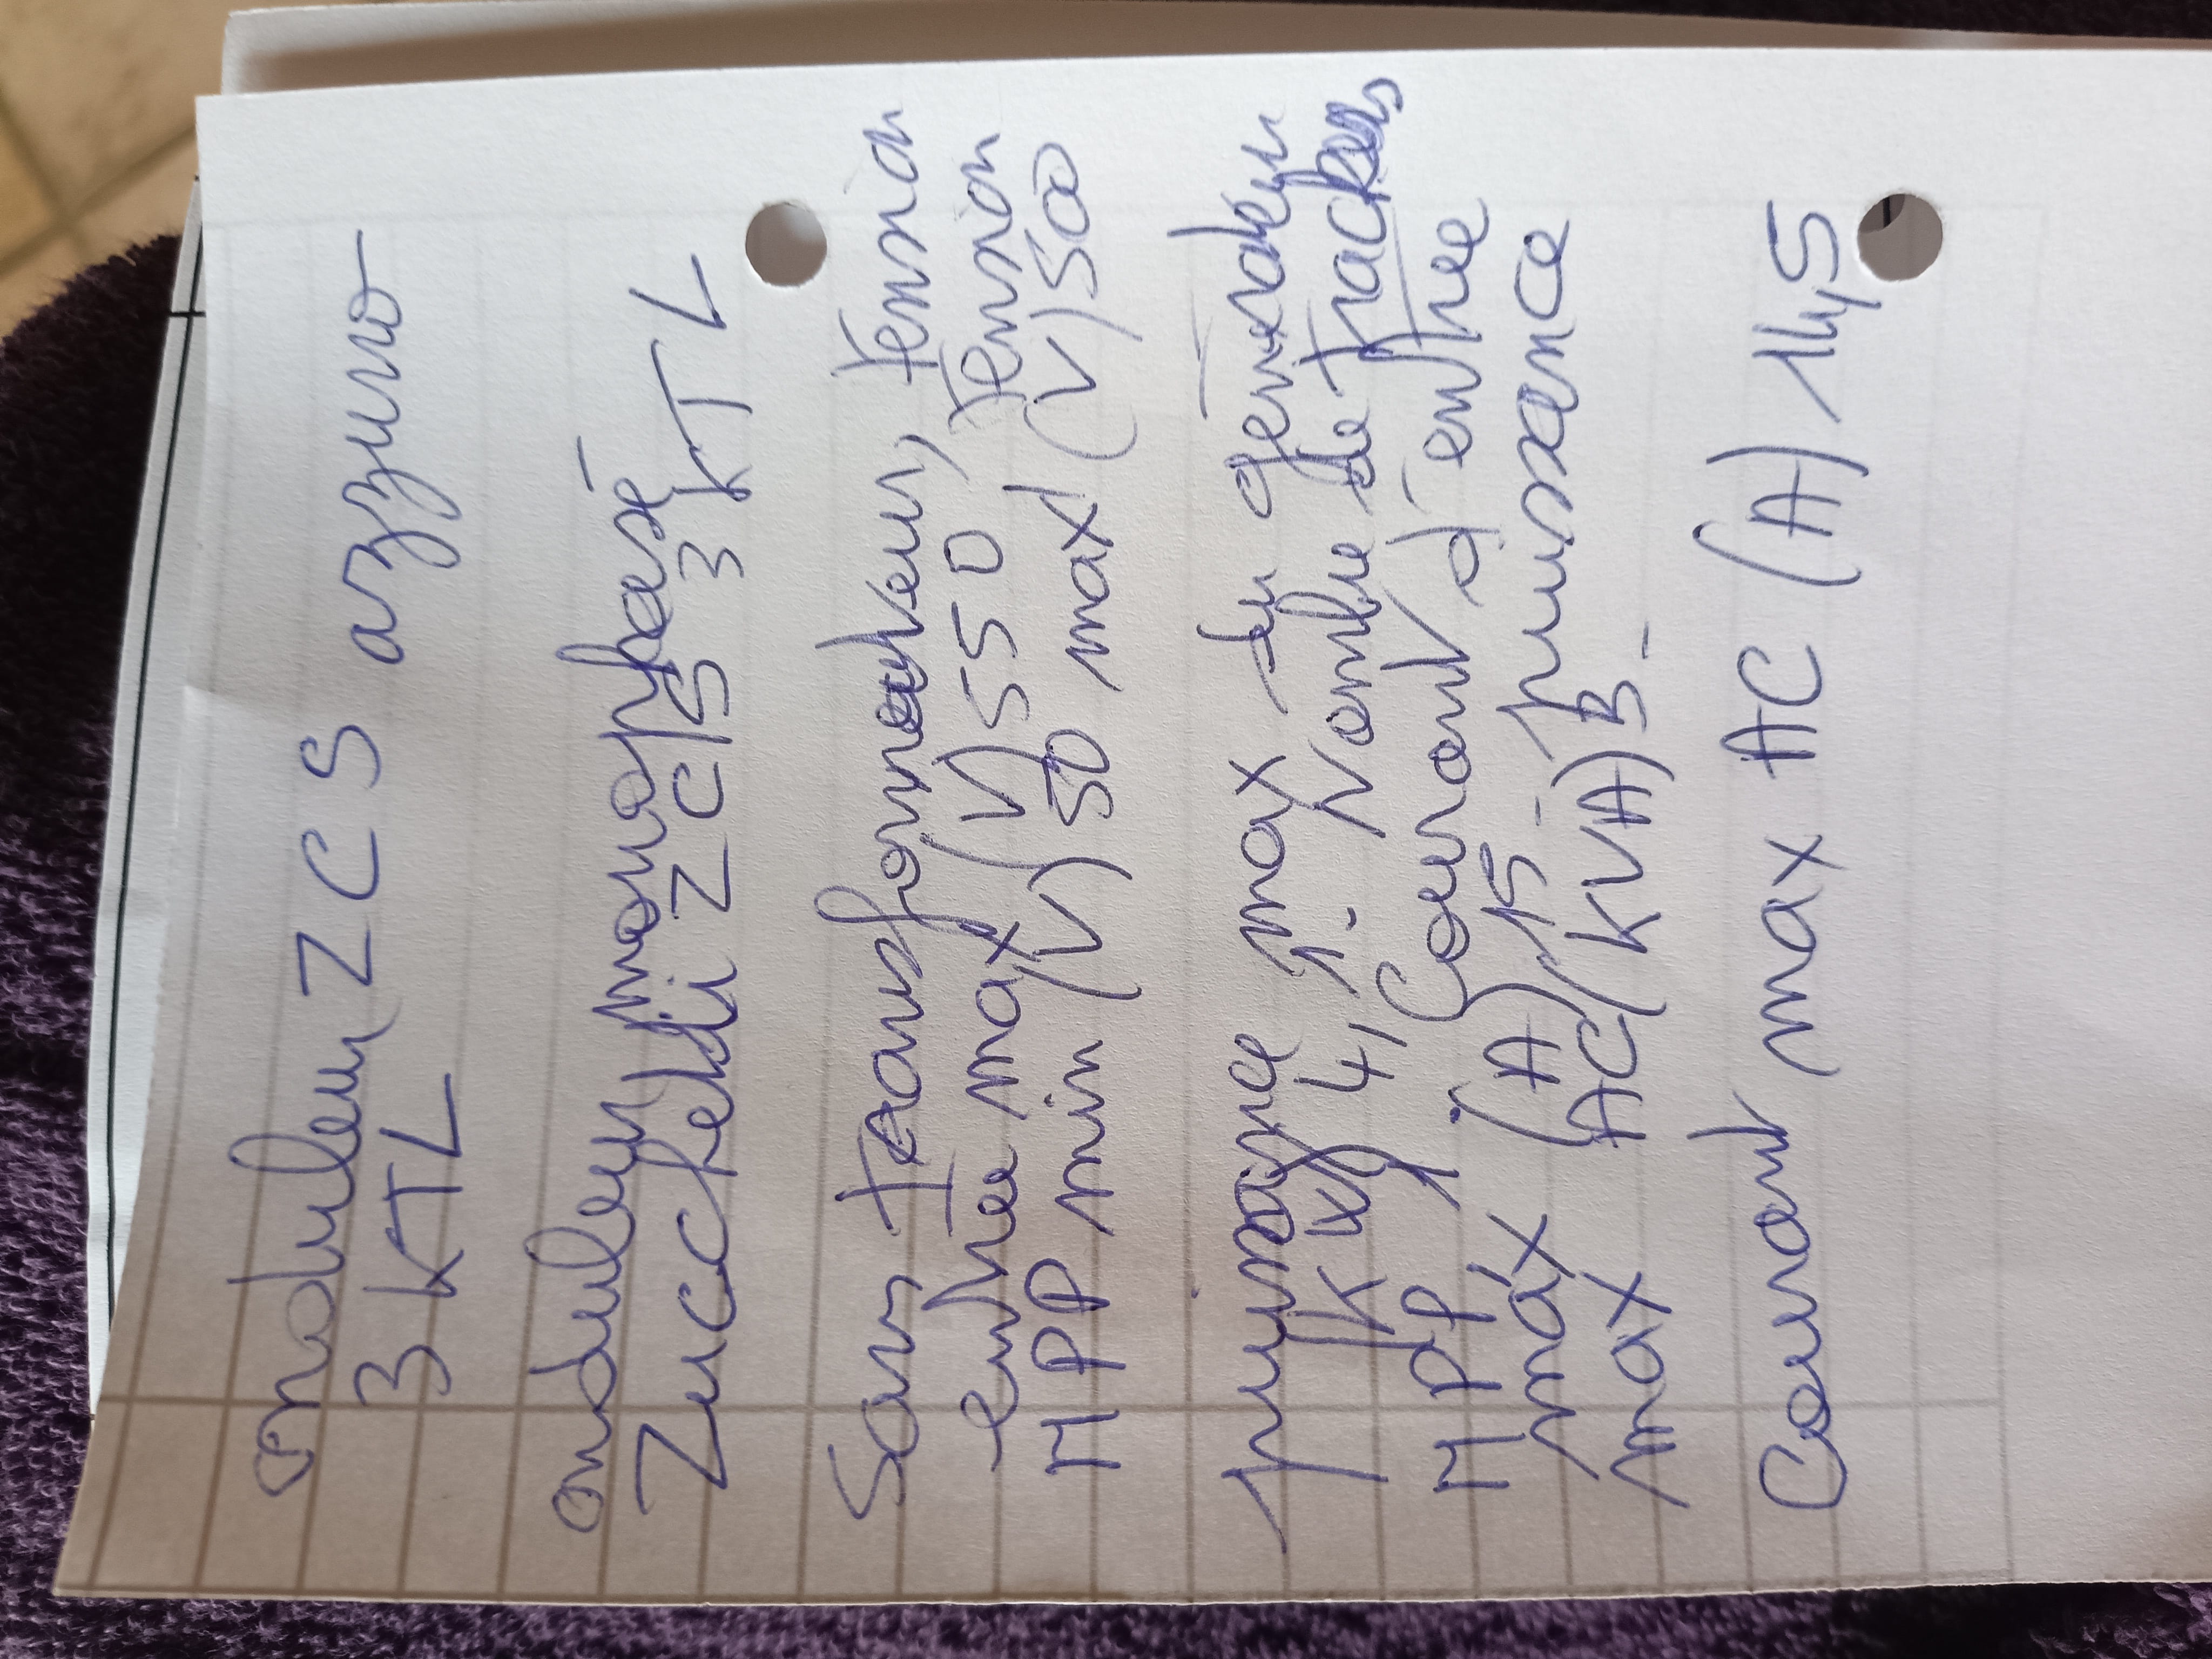 onduleur ZCS azzuro
3 KTL
onduleur monophasé
Zucchetti ZCS 3 KTL
Sans transformateur, tension
entrée max (V) 550, tension
MPP min (V) 50 max (V) 500
puissance max du générateur
(KW) 4,1. Nombre de trackers
MPP, 1, Courant d'entrée
max (A) 15 - puissance
max AC (KVA) 3 -
Courant max AC (A) 14,5